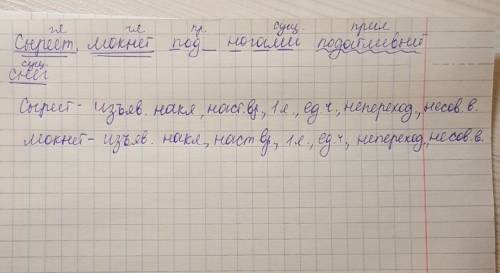 гл гл пр. сущ. прил
Сыреет, мокнет под ногами податливый
сущ.
снег
Сыреет - изъяв. накл, наст.вр, 1 л., ед ч., непереход., несов. в.
Мокнет - изъяв. накл, наст вр, 1 л., ед. ч, непереход., несов. в.